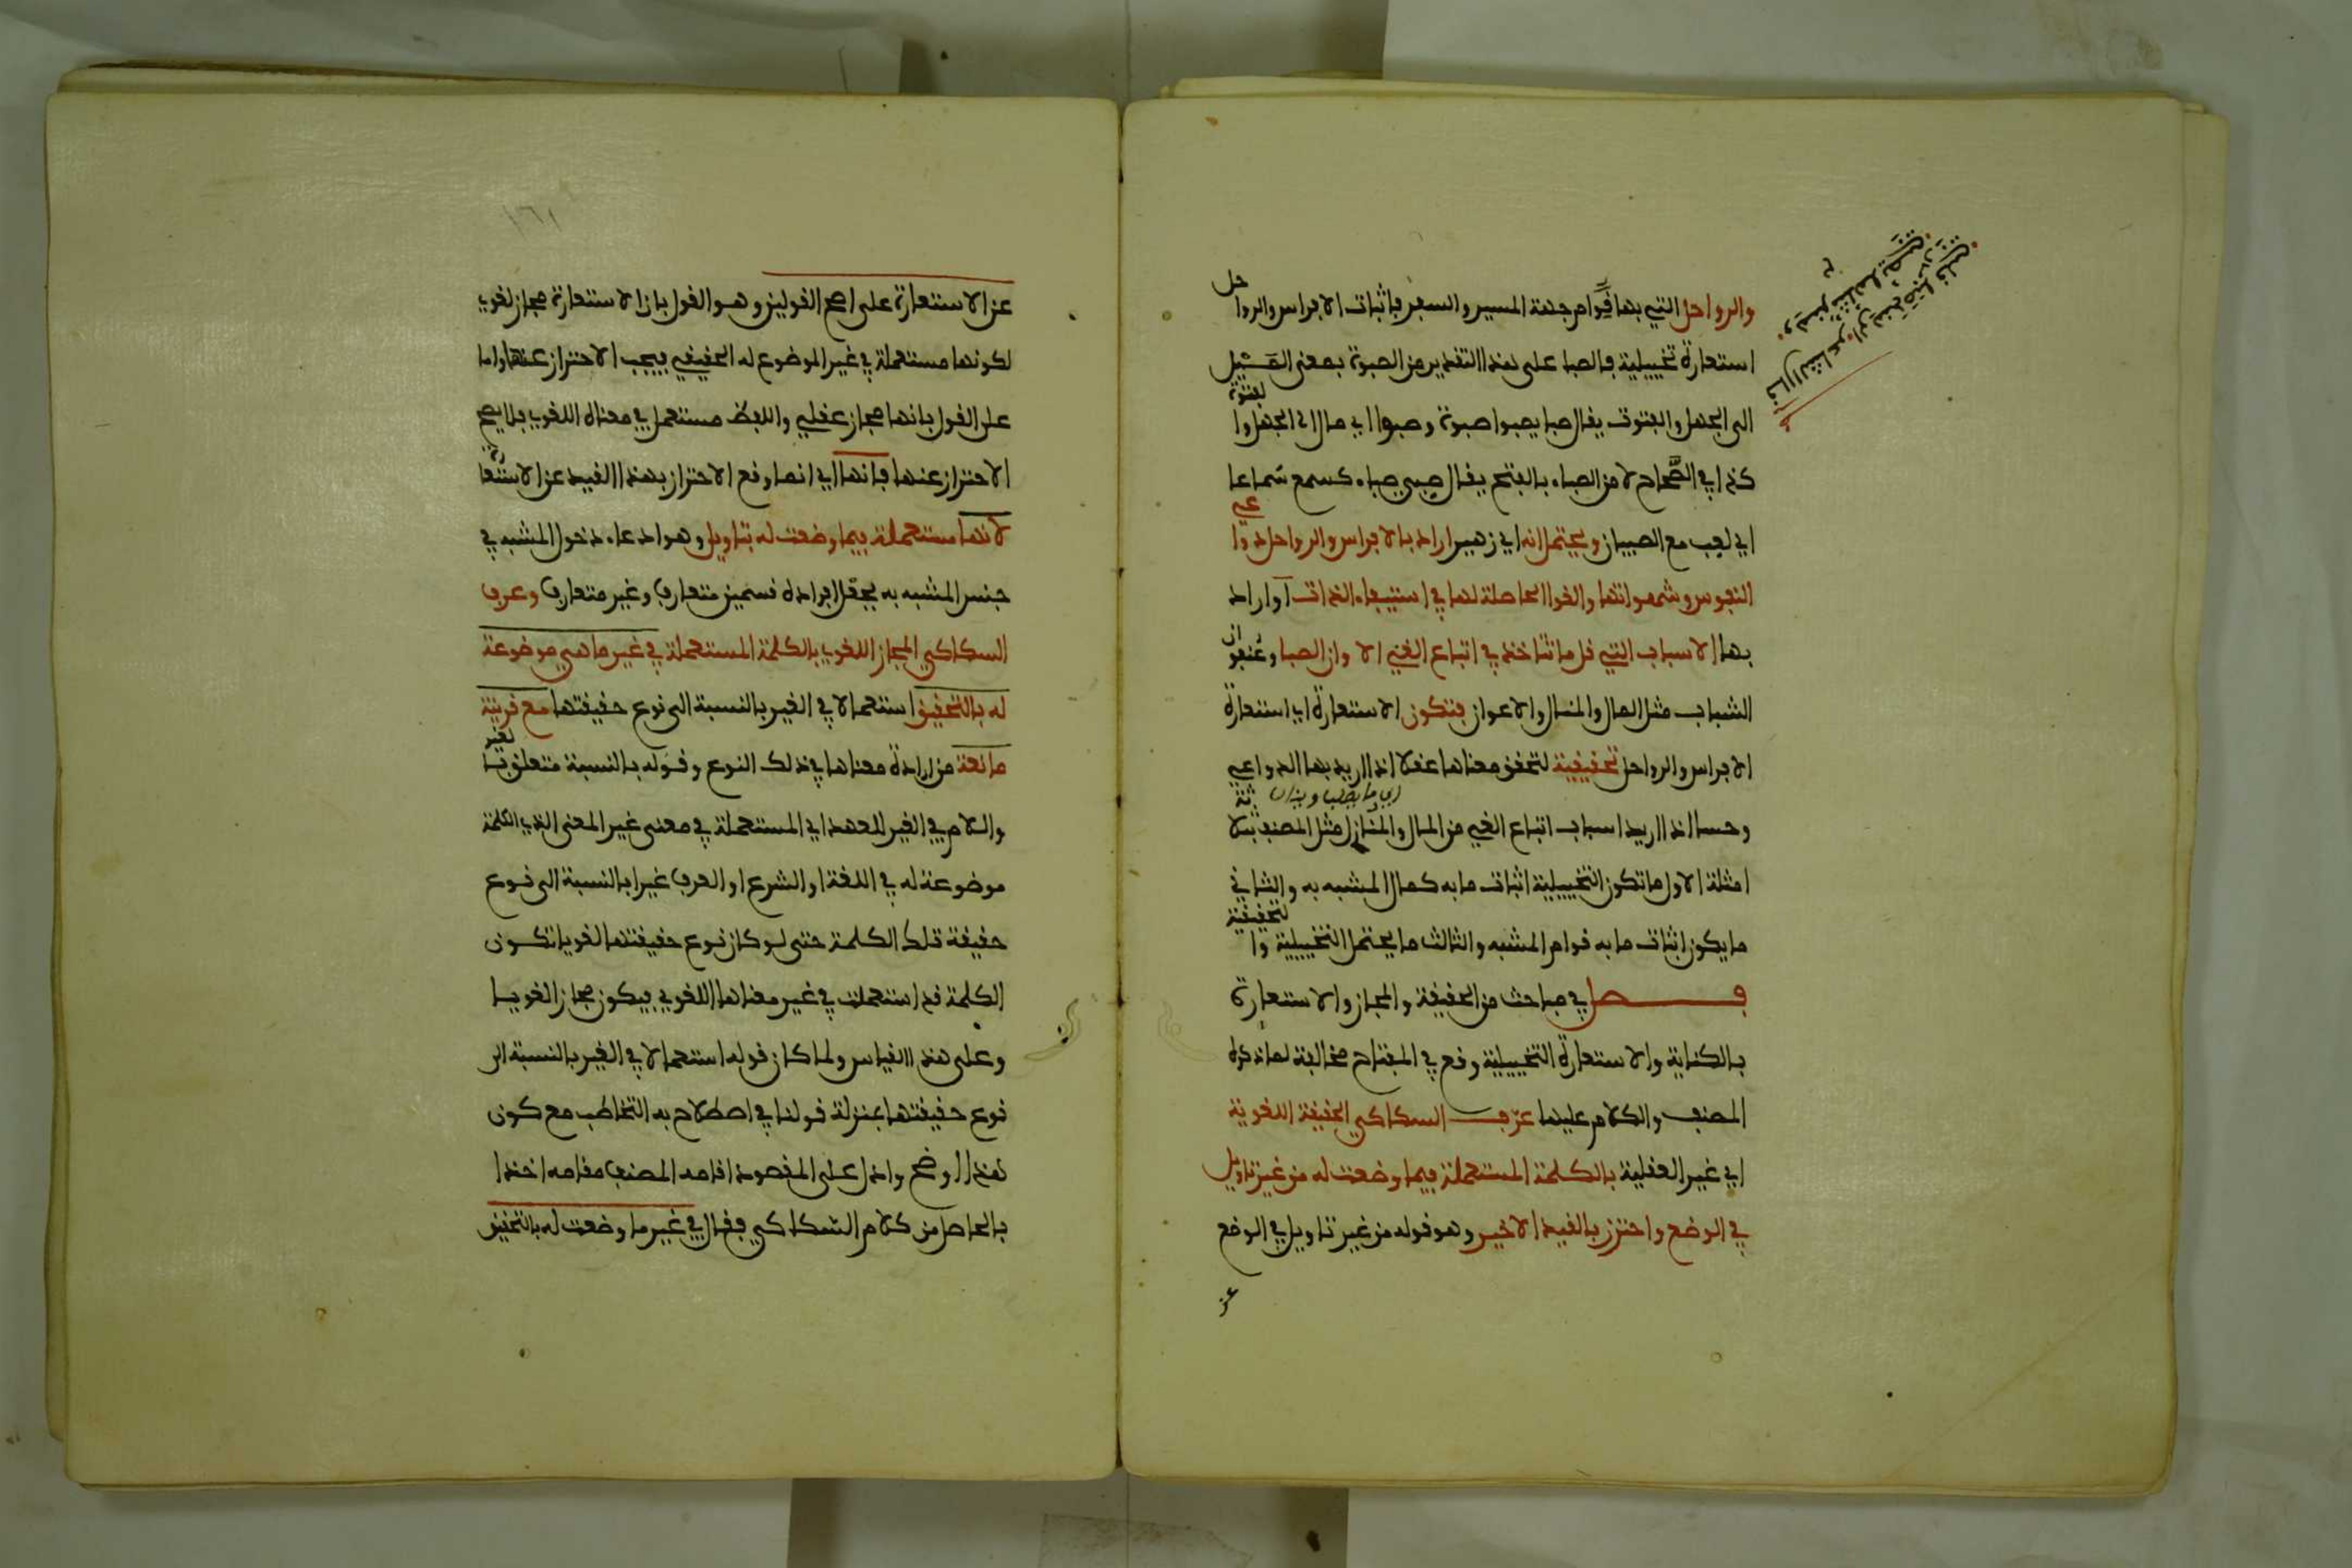 والرواحل التي بها قوام جهة المسير والسفر فاثبات الافراس والرواحل
استعارة تخييلية فالصبا على هذا التقدير من الصبوة بمعنى الميل
الى الجهل والفتوة يقال صبا يصبوا صبوة وصبوا اي مال الى الجهل والفتوة
كذا في الصحاح لا من الصباء بالفتح يقال صبي صباء كسمع سماعا
اي لعب مع الصبيان ويحتمل انه اي زهير اراد بالافراس والرواحل دواعي
النفوس وشهواتها والقوا الحاصلة لها في استيفاء اللذات او اراد
بها الاسباب التي قل ما تتاخذ في اتباع الغي الا وان الصبا وعنفوان
الشباب مثل المال والمنال والاعوان فتكون الاستعارة اي استعارة
الافراس والرواحل تحقيقية لتحقق معناها عقلا اذا اريد بها الدواعي
وحسا اذا اريد اسباب اتباع الغي من المال والمنال مثل المصنف بثلاثة
امثلة الاول ما تكون التخييلية اثبات ما به كمال المشبه به والثاني
ما يكون اثبات ما به قوام المشبه والثالث ما يحتمل التخييلية والتحقيقية
فصل في مباحث من الحقيقة والمجاز والاستعارة
بالكناية والاستعارة التخييلية وقع في المفتاح مخالفة لما ذكره
المصنف والكلام عليها عرف السكاكي الحقيقة اللغوية
اي غير العقلية بالكلمة المستعملة فيما وضعت له من غير تاويل
في الوضع واحترز بالقيد الاخير وهو قوله من غير تاويل في الوضع
عن
عن الاستعارة على اصح القولين وهو القول بان الاستعارة مجاز لغوي
لكونها مستعملة في غير الموضوع له الحقيقي فيجب الاحتراز عنها واما
على القول بانها مجاز عقلي واللفظ مستعمل في معناه اللغوي فلا يصح
الاحتراز عنها فانها اي انما وقع الاحتراز بهذا القيد عن الاستعارة
لانها مستعملة فيما وضعت له بتاويل وهو ادعاء دخول المشبه في
جنس المشبه به بجعل افراده قسمين متعارف وغير متعارف وعرف
السكاكي المجاز اللغوي بالكلمة المستعملة في غير ما هي موضوعة
له بالتحقيق استعمالا في الغير بالنسبة الى نوع حقيقتها مع قرينة
مانعة من ارادة معناها في ذلك النوع وقوله بالنسبة متعلق بالغير
واللام في الغير للعهد اي المستعملة في معنى غير المعنى الذي الكلمة
موضوعة له في اللغة او الشرع او العرف غيرا بالنسبة الى نوع
حقيقة تلك الكلمة حتى لو كان نوع حقيقتها لغويا تكون
الكلمة قد استعملت في غير معناها اللغوي فيكون مجازا لغويا
وعلى هذا القياس ولما كان قوله استعمالا في الغير بالنسبة الى
نوع حقيقتها بمنزلة قولنا في اصطلاح به التخاطب مع كون
هذا اوضح وادل على المقصود اقامه المصنف مقامه اخذا
بالحاصل من كلام السكاكي فقال في غير ما وضعت له بالتحقيق